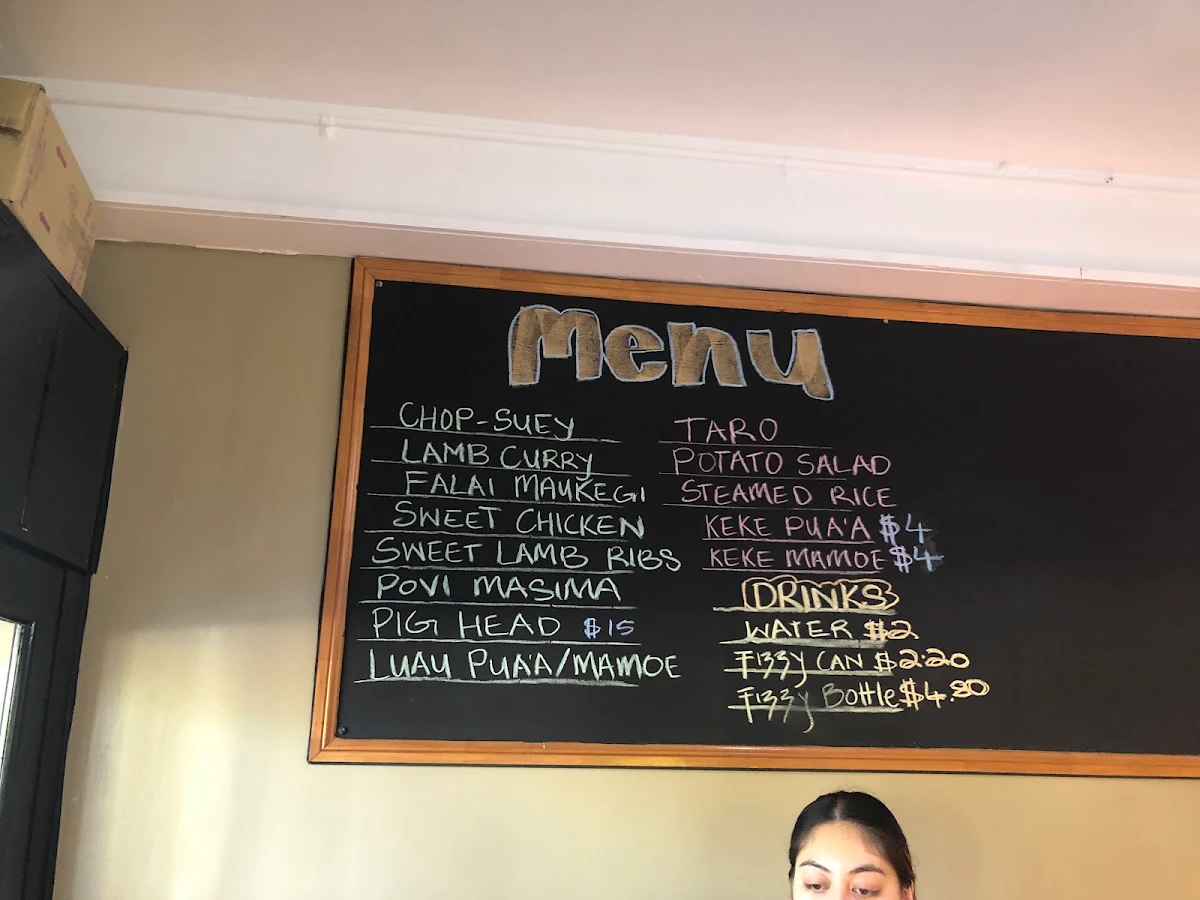 Menu
CHOP-SUEY
LAMB CURRY
FALAI MAUKEGI
SWEET CHICKEN
SWEET LAMB RIBS
POVI MASIMA
PIG HEAD $15
LUAU PUA'A/MAMOE
TARO
POTATO SALAD
STEAMED RICE
KEKE PUA'A $4
KEKE MAMOE $4
DRINKS
WATER $2
Fizzy CAN $2.20
Fizzy Bottle $4.80